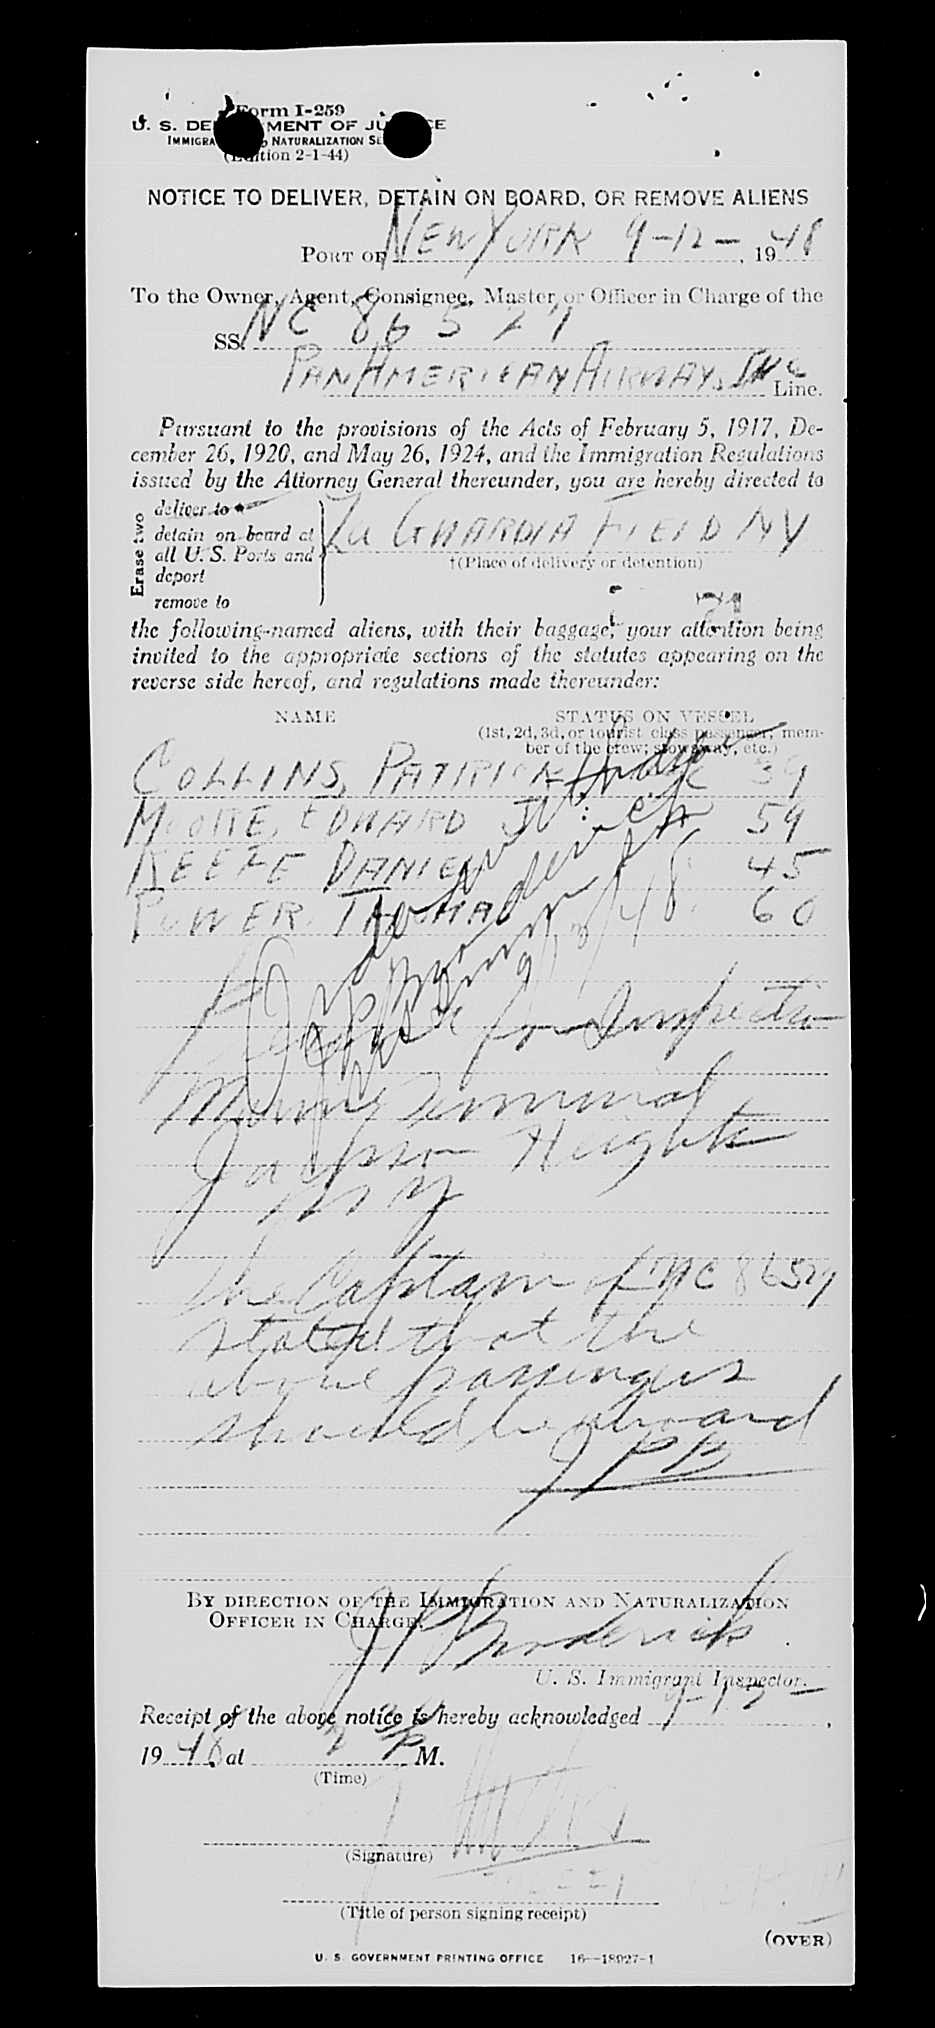 Form I-259
U. S. DE MENT OF JU CE
IMMIGRA NATURALIZATION SE
(Edition 2-1-44)
NOTICE TO DELIVER, DETAIN ON BOARD, OR REMOVE ALIENS
PORT OF NEW YORK 9-12-, 1948
To the Owner, Agent, Consignee, Master or Officer in Charge of the
SS. NC 86527
PAN AMERICAN AIRWAYS INC Line.
Pursuant to the provisions of the Acts of February 5, 1917, De-
cember 26, 1920, and May 26, 1924, and the Immigration Regulations
issued by the Attorney General thereunder, you are hereby directed to
Erase two
deliver to
detain on board at
all U. S. Ports and
deport
remove to
La GUARDIA FIELD NY
†(Place of delivery or detention)
the following-named aliens, with their baggage, your attention being
invited to the appropriate sections of the statutes appearing on the
reverse side hereof, and regulations made thereunder:
NAME STATUS ON VESSEL
(1st, 2d, 3d, or tourist class passenger, mem-
ber of the crew; stowaway, etc.)
COLLINS, PATRICK 39
MOORE, EDWARD J 59
KEEFE DANIEL 45
POWER THOMAS 60
for Inspection
Marine Terminal
Jackson Heights
NY
The Captain of NC 86527
stated that the
above passengers
should be aboard
JPB
BY DIRECTION OF THE IMMIGRATION AND NATURALIZATION
OFFICER IN CHARGE.
J P Broderick
U. S. Immigrant Inspector.
Receipt of the above notice is hereby acknowledged 9-12-,
1948 at P M.
(Time)
(Signature)
(Title of person signing receipt)
(OVER)
U. S. GOVERNMENT PRINTING OFFICE 16—18927-1